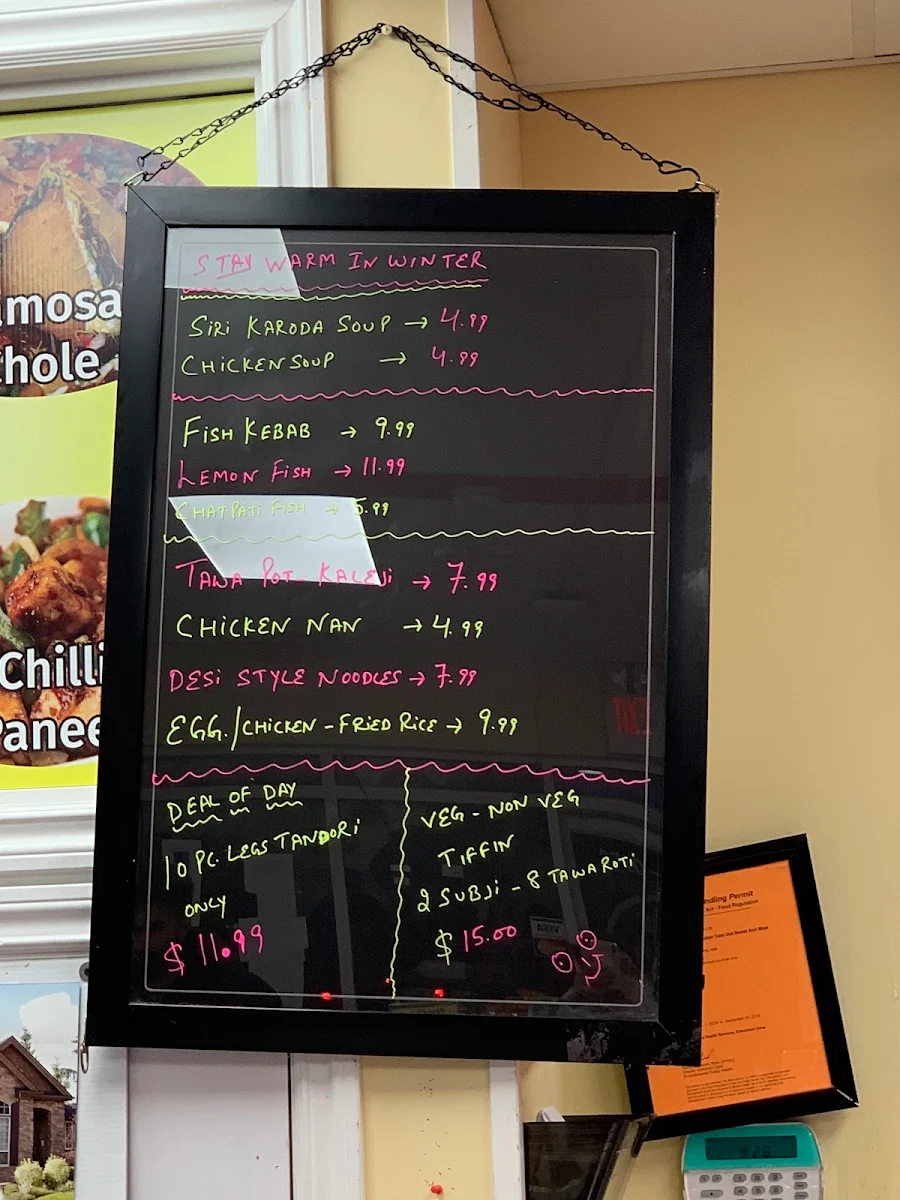 STAY WARM IN WINTER
SiRi KARODA SOUP → 4.99
CHICKEN SOUP → 4.99
FiSH KEBAB → 9.99
LEMON FiSH → 11.99
CHATPATI FISH → 5.99
TAWA POT- KALEJi → 7.99
CHiCKEN NAN → 4.99
DESi STYLE NOODLES → 7.99
EGG./CHICKEN - FRIED RICE → 9.99
DEAL OF DAY
10 PC. LEGS TANDORi
ONLY
$ 11.99
VEG - NON VEG
TIFFIN
2 SUBJi - 8 TAWA ROTI
$ 15.00
amosa
hole
Chilli
anee
ndling Permit
Act - Food Regulation